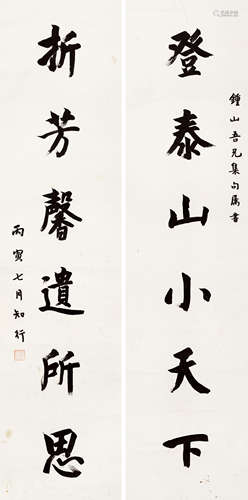 鍾山吾兄集句属書
登泰山小天下
折芳馨遺所思
丙寅七月知行